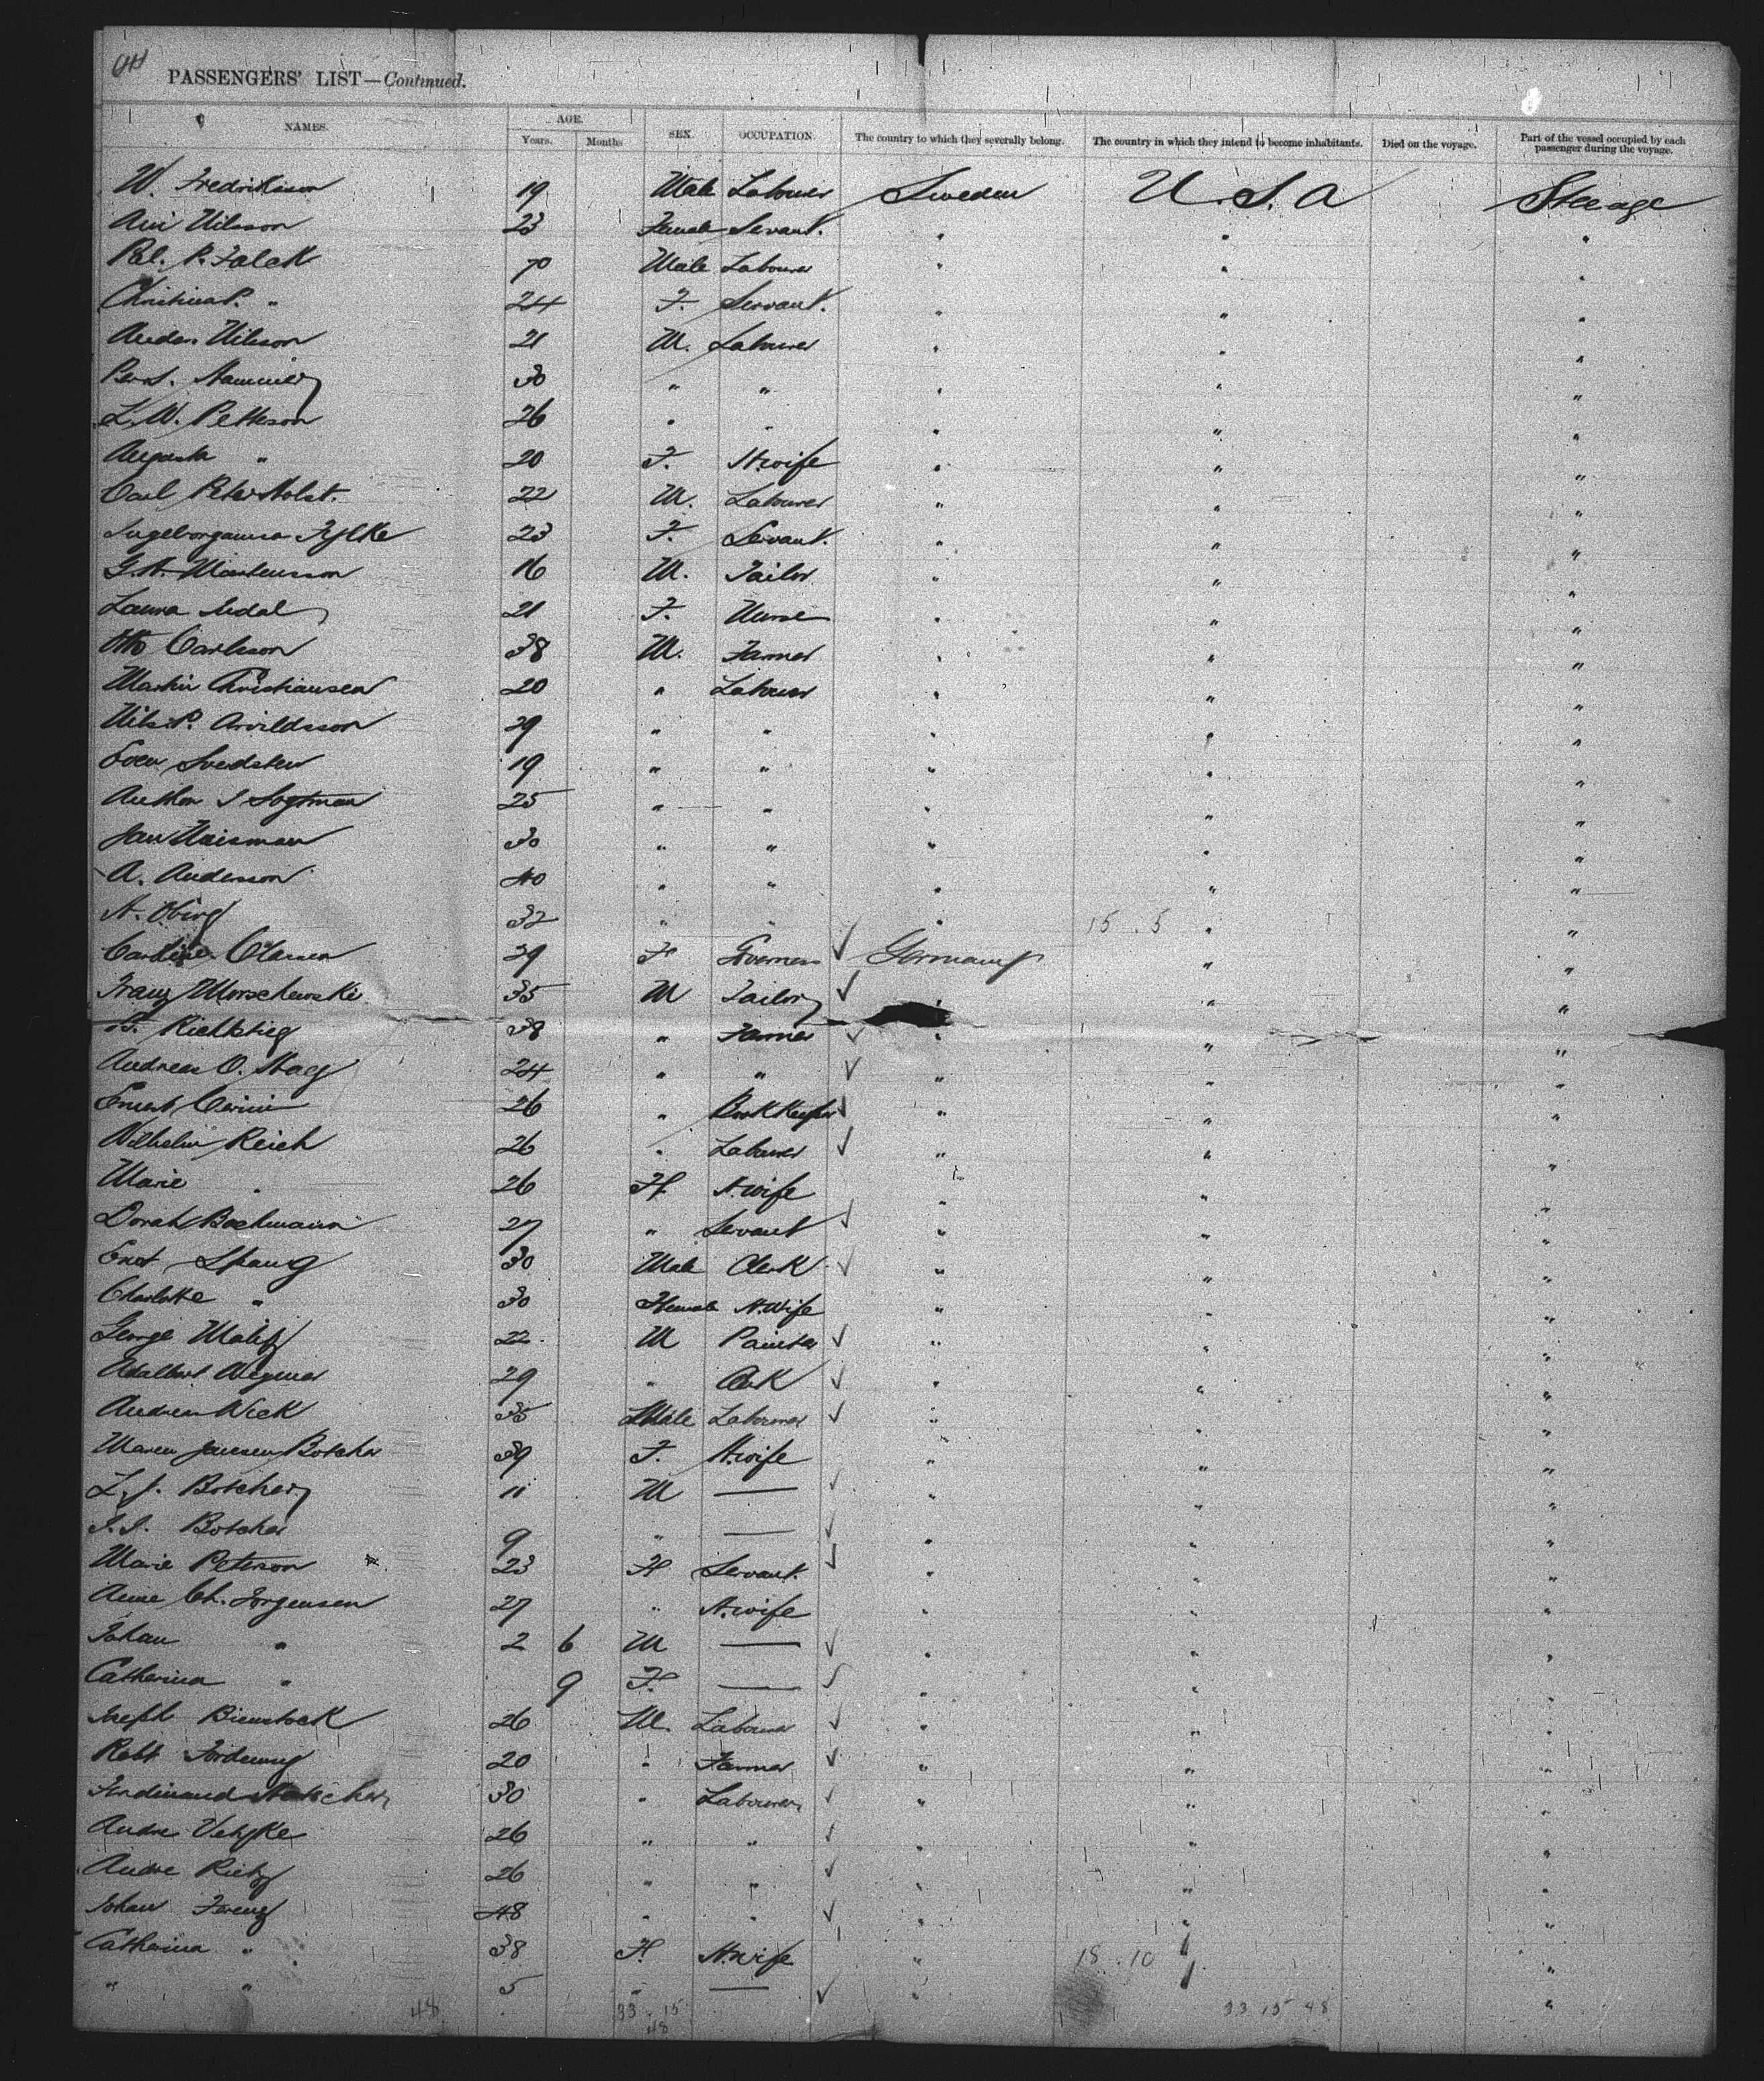 PASSENGERS' LIST—Continued.
NAMES. AGE. Years. Months. SEX. OCCUPATION. The country to which they severally belong. The country in which they intend to become inhabitants. Died on the voyage. Part of the vessel occupied by each passenger during the voyage.
W. Fredriksson 19 Male Labourer Sweden U.S.A Steerage
Nilsson 23 Female Servant. " " "
P. Falck 70 Male Labourer " " "
Christina P. " 24 F. Servant. " " "
Nilsson 21 M. Labourer " " "
30 " " " " "
L. W. Pettesson 26 " " " " "
Augusta " 20 F. H.wife " " "
Carl Peter Holst. 22 M. Labourer " " "
Fylke 23 F. Servant. " " "
Martensson 16 M. Tailor " " "
Laura 21 F. Nurse " " "
Otto Carlsson 38 M. Farmer " " "
Martin Christiansen 20 " Labourer " " "
Nils P. Arvildsson 29 " " " " "
Sven 19 " " " " "
25 " " " " "
Jan 30 " " " " "
A. Anderson 40 " " " " "
32 " " " 15 . 5 " "
29 F Governess ✓ Germany " "
Franz Morschewski 35 M Tailor ✓ " " "
38 " Farmer ✓ " " "
Andreas O. 24 " " ✓ " " "
Ernest 26 " Book Keeper ✓ " " "
Wilhelm Reich 26 " Labourer ✓ " " "
Marie " 26 F H.wife " " "
Dorah Bachmann 27 " Servant ✓ " " "
30 Male Clerk ✓ " " "
Charlotte " 30 Female H.Wife " " "
George 22 M Painter ✓ " " "
Adalbert Wegner 29 " Clerk ✓ " " "
Andreas Wick 35 Male Labourer ✓ " " "
Maren Jansen Botcher 39 F. H.wife " " "
L. J. Botcher 11 M — ✓ " " "
Botcher 9 " — ✓ " " "
Marie Peterson 23 F Servant ✓ " " "
Anne Ch. Jorgensen 27 " H.wife " " "
Johan " 2 6 M — ✓ " " "
Catherina " 9 F. — ✓ " " "
Joseph Bienstock 26 M. Labourer ✓ " " "
Robt 20 " Farmer ✓ " " "
Ferdinand 30 " Labourer ✓ " " "
Andre 26 " " ✓ " " "
Andre Rietz 26 " " ✓ " " "
Johan Ferenz 48 " " ✓ " " "
Catherina " 38 F. H.wife " 18 . 10 " "
" " 5 " — ✓ " "
48 33 . 15 33 15 48
48